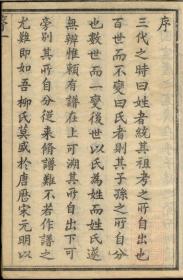 序
三代之時曰姓者統其祖考之所自出也
百世而不變曰氏者則其子孫之所自分
也數世而一變後世以氏為姓而姓氏遂
無辨惟賴有譜在上可溯其所自出下可
旁別其所自分從来脩譜難不若作譜之
尤難即如吾柳氏莫盛於唐歷宋元明以